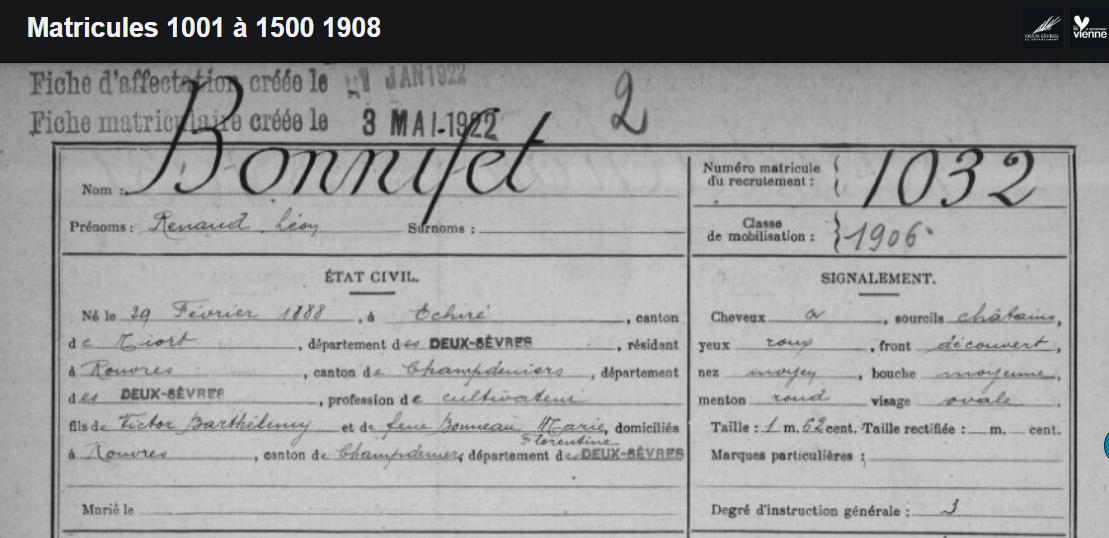 Matricules 1001 à 1500 1908
DEUX-SÈVRES
vienne
Fiche d'affectation créée le JAN 1922
Fiche matriculaire créée le 3 MAI 1922
2
Nom : Bonnifet
Numéro matricule du recrutement : 1032
Prénoms : Renaud Léon Surnoms :
Classe de mobilisation : 1906
ÉTAT CIVIL.
Né le 29 Février 1888, à Echiré, canton
de Niort, département des DEUX-SÈVRES, résidant
à Rouvres, canton de Champdeniers, département
des DEUX-SÈVRES, profession de cultivateur
fils de Victor Barthélemy et de feue Bonneau Marie, domiciliés
Florentine
à Rouvres, canton de Champdeniers, département des DEUX-SÈVRES
Marié le
SIGNALEMENT.
Cheveux et, sourcils châtains,
yeux roux, front découvert,
nez moyen, bouche moyenne,
menton rond visage ovale.
Taille : 1 m. 62 cent. Taille rectifiée : m. cent.
Marques particulières :
Degré d'instruction générale : 3